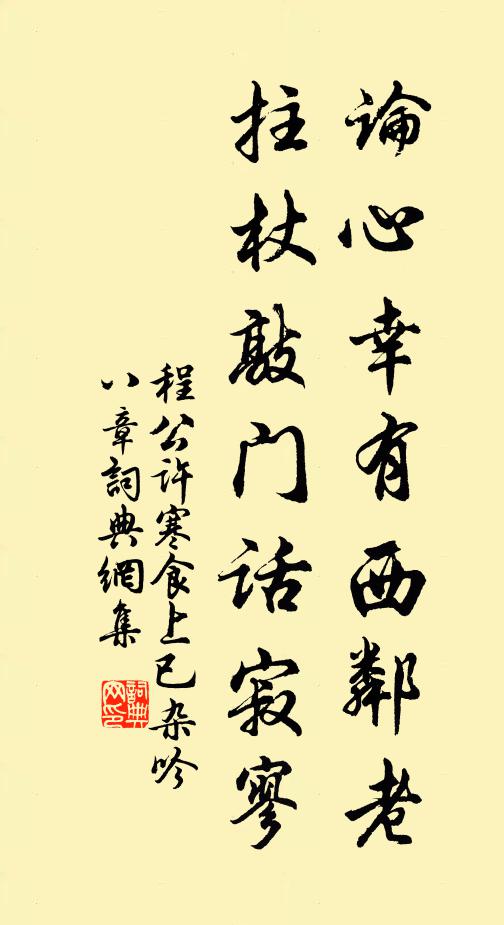 論心幸有西鄰老
拄杖敲门话寂寥
程公许寒食上已杂吟
八章詞典網集
詞典网印